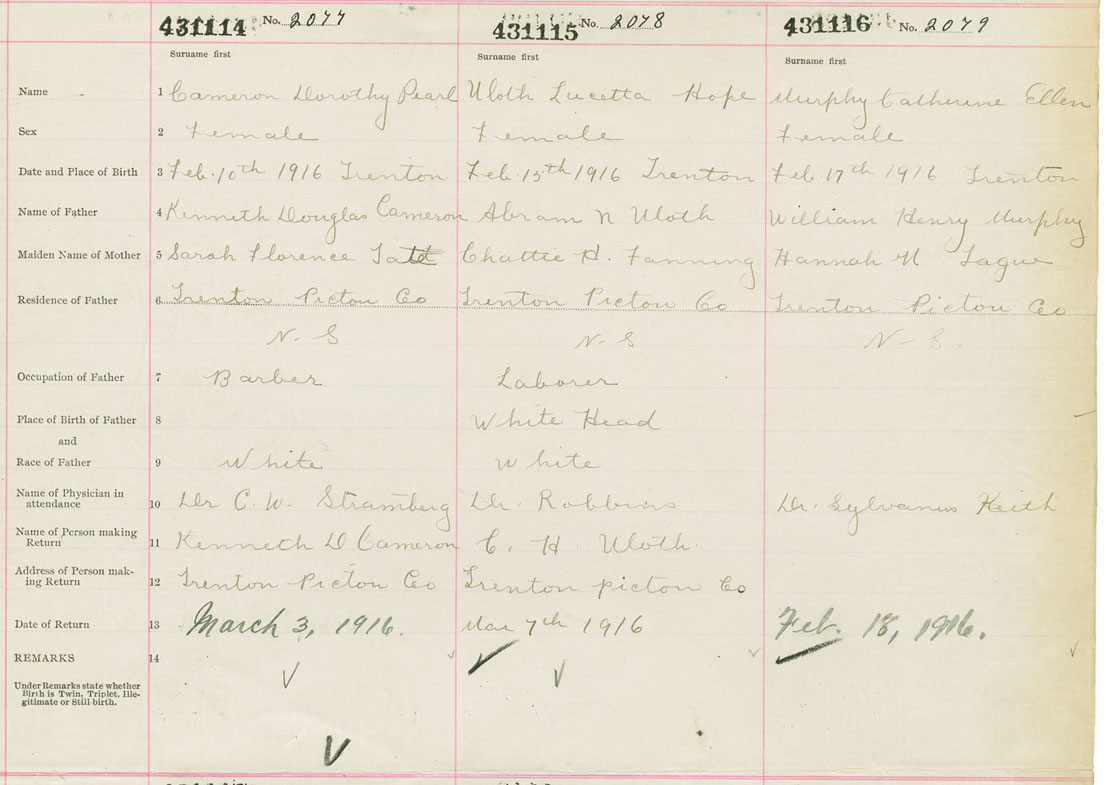 431114 No. 2077 431115 No. 2078 431116 No. 2079
Surname first Surname first Surname first
Name 1 Cameron Dorothy Pearl Uloth Lucetta Hope Murphy Catherine Ellen
Sex 2 Female Female Female
Date and Place of Birth 3 Feb. 10th 1916 Trenton Feb. 15th 1916 Trenton Feb 17th 1916 Trenton
Name of Father 4 Kenneth Douglas Cameron Abram N Uloth William Henry Murphy
Maiden Name of Mother 5 Sarah Florence Chattie H. Fanning Hannah
Residence of Father 6 Trenton Pictou Co Trenton Pictou Co Trenton Pictou Co
N. S N. S N. S.
Occupation of Father 7 Barber Laborer
Place of Birth of Father 8 White Head
and
Race of Father 9 White White
Name of Physician in
attendance 10 Dr C. W. Stramberg Dr. Robbins Dr. Sylvanus Keith
Name of Person making
Return 11 Kenneth D Cameron C. H. Uloth
Address of Person mak-
ing Return 12 Trenton Pictou Co Trenton pictou Co
Date of Return 13 March 3, 1916. Mar 7th 1916 Feb. 18, 1916.
REMARKS 14
Under Remarks state whether
Birth is Twin, Triplet, Ille-
gitimate or Still-birth.